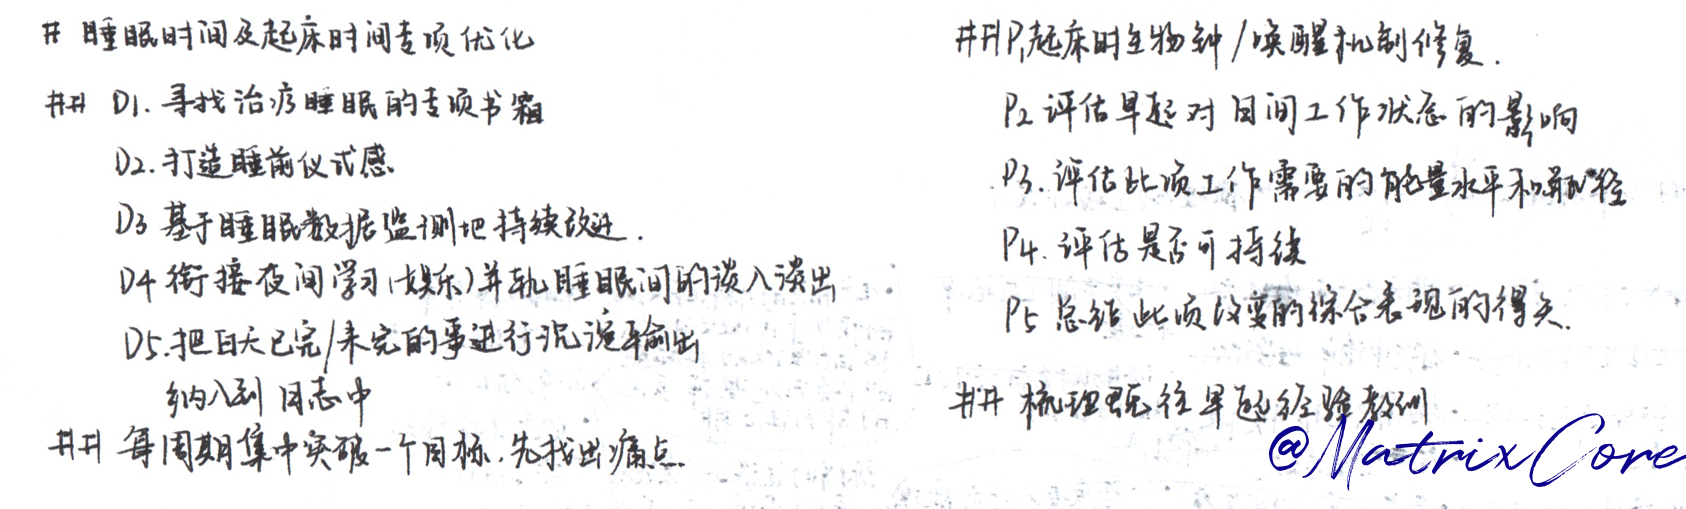 # 睡眠时间及起床时间专项优化
## D1. 寻找治疗睡眠的专项书籍
D2. 打造睡前仪式感
D3 基于睡眠数据监测把持续改进.
D4 衔接夜间学习(娱乐)并轨睡眠间的淡入淡出
D5. 把白天已完/未完的事进行沉淀输出
纳入到日志中
## 每周期集中突破一个目标. 先找出痛点.
## P1起床时生物钟/唤醒机制修复.
P2 评估早起对日间工作状态的影响
P3. 评估此项工作需要的能量水平和路径
P4. 评估是否可持续
P5 总结此项改变的综合表现的得失.
## 梳理既往早起经验教训
@MatrixCore